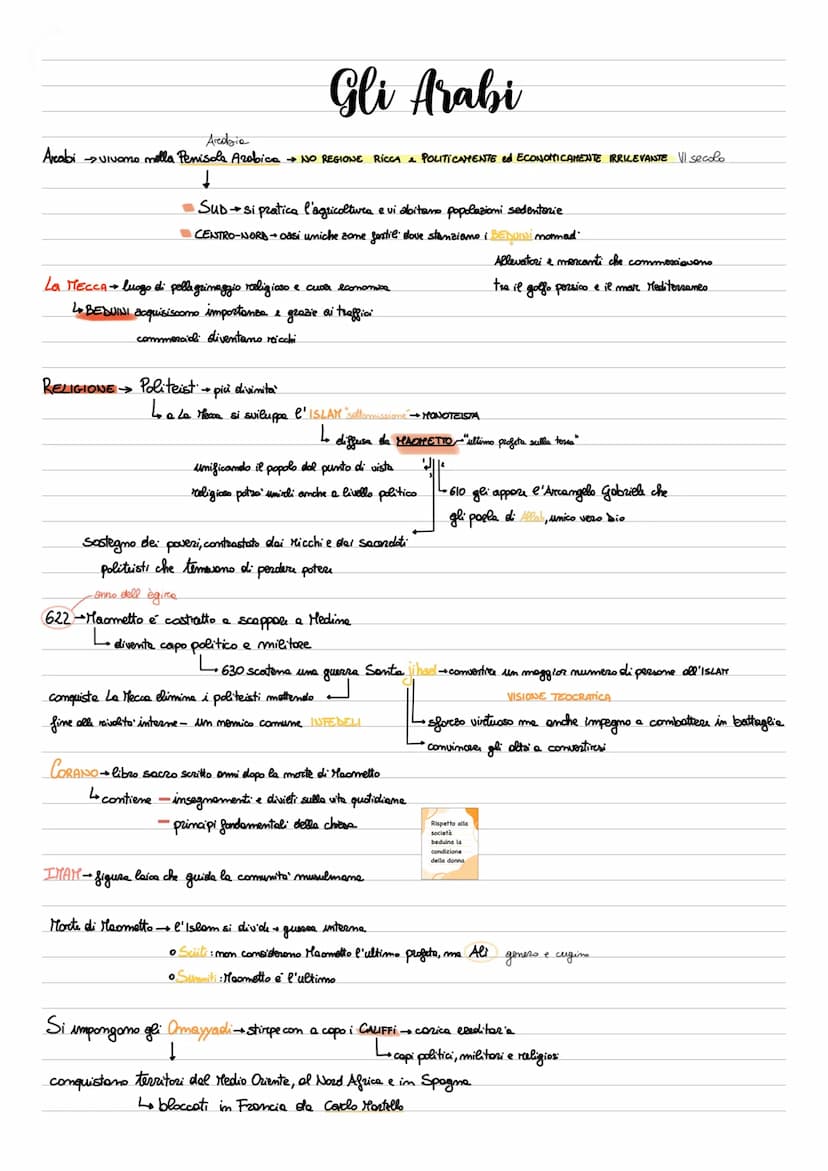 Gli Arabi
Arabia
Arabi → vivono nella Penisola Arabica → NO REGIONE RICCA e POLITICAMENTE ed ECONOMICAMENTE IRRILEVANTE VI secolo
SUD → si pratica l'agricoltura e vi abitano popolazioni sedentarie
CENTRO-NORD → oasi uniche zone fertili dove stanziano i BEDUINI nomadi
Allevatori e mercanti che commerciavano
La MECCA → luogo di pellegrinaggio religioso e cuore economico
tra il golfo persico e il mar Mediterraneo
BEDUINI acquisiscono importanza e grazie ai traffici
commerciali diventano ricchi
RELIGIONE → Politeisti → più divinità
a La Mecca si sviluppa l'ISLAM "sottomissione" → MONOTEISTA
diffusa da MAOMETTO → "ultimo profeta sulla terra"
unificando il popolo dal punto di vista
religioso potra' unirli anche a livello politico
610 gli appare l'Arcangelo Gabriele che
gli parla di Allah, unico vero Dio
sostegno dei poveri, contrastato dai ricchi e dai sacerdoti
politeisti che temevano di perdere potere
anno dell'ègira
622 → Maometto è costretto a scappare a Medina
diventa capo politico e militare
630 scatena una guerra Santa jihad → convertire un maggior numero di persone all'ISLAM
conquista La Mecca elimina i politeisti mettendo
VISIONE TEOCRATICA
fine alle rivalità interne – un nemico comune INFEDELI
sforzo virtuoso ma anche impegno a combattere in battaglia
convincere gli altri a convertirsi
CORANO → libro sacro scritto anni dopo la morte di Maometto
contiene – insegnamenti e divieti sulla vita quotidiana
– principi fondamentali della chiesa
Rispetto alla
società
beduina la
condizione
della donna
IMAM → figura laica che guida la comunità musulmana
Morte di Maometto → l'Islam si divide → guerra interna
Sciiti: non considerano Maometto l'ultimo profeta, ma Alì genero e cugino
Sunniti: Maometto è l'ultimo
Si impongono gli Omayyadi → stirpe con a capo i CALIFFI → carica ereditaria
capi politici, militari e religiosi
conquistano territori dal Medio Oriente, al Nord Africa e in Spagna
bloccati in Francia da Carlo Martello